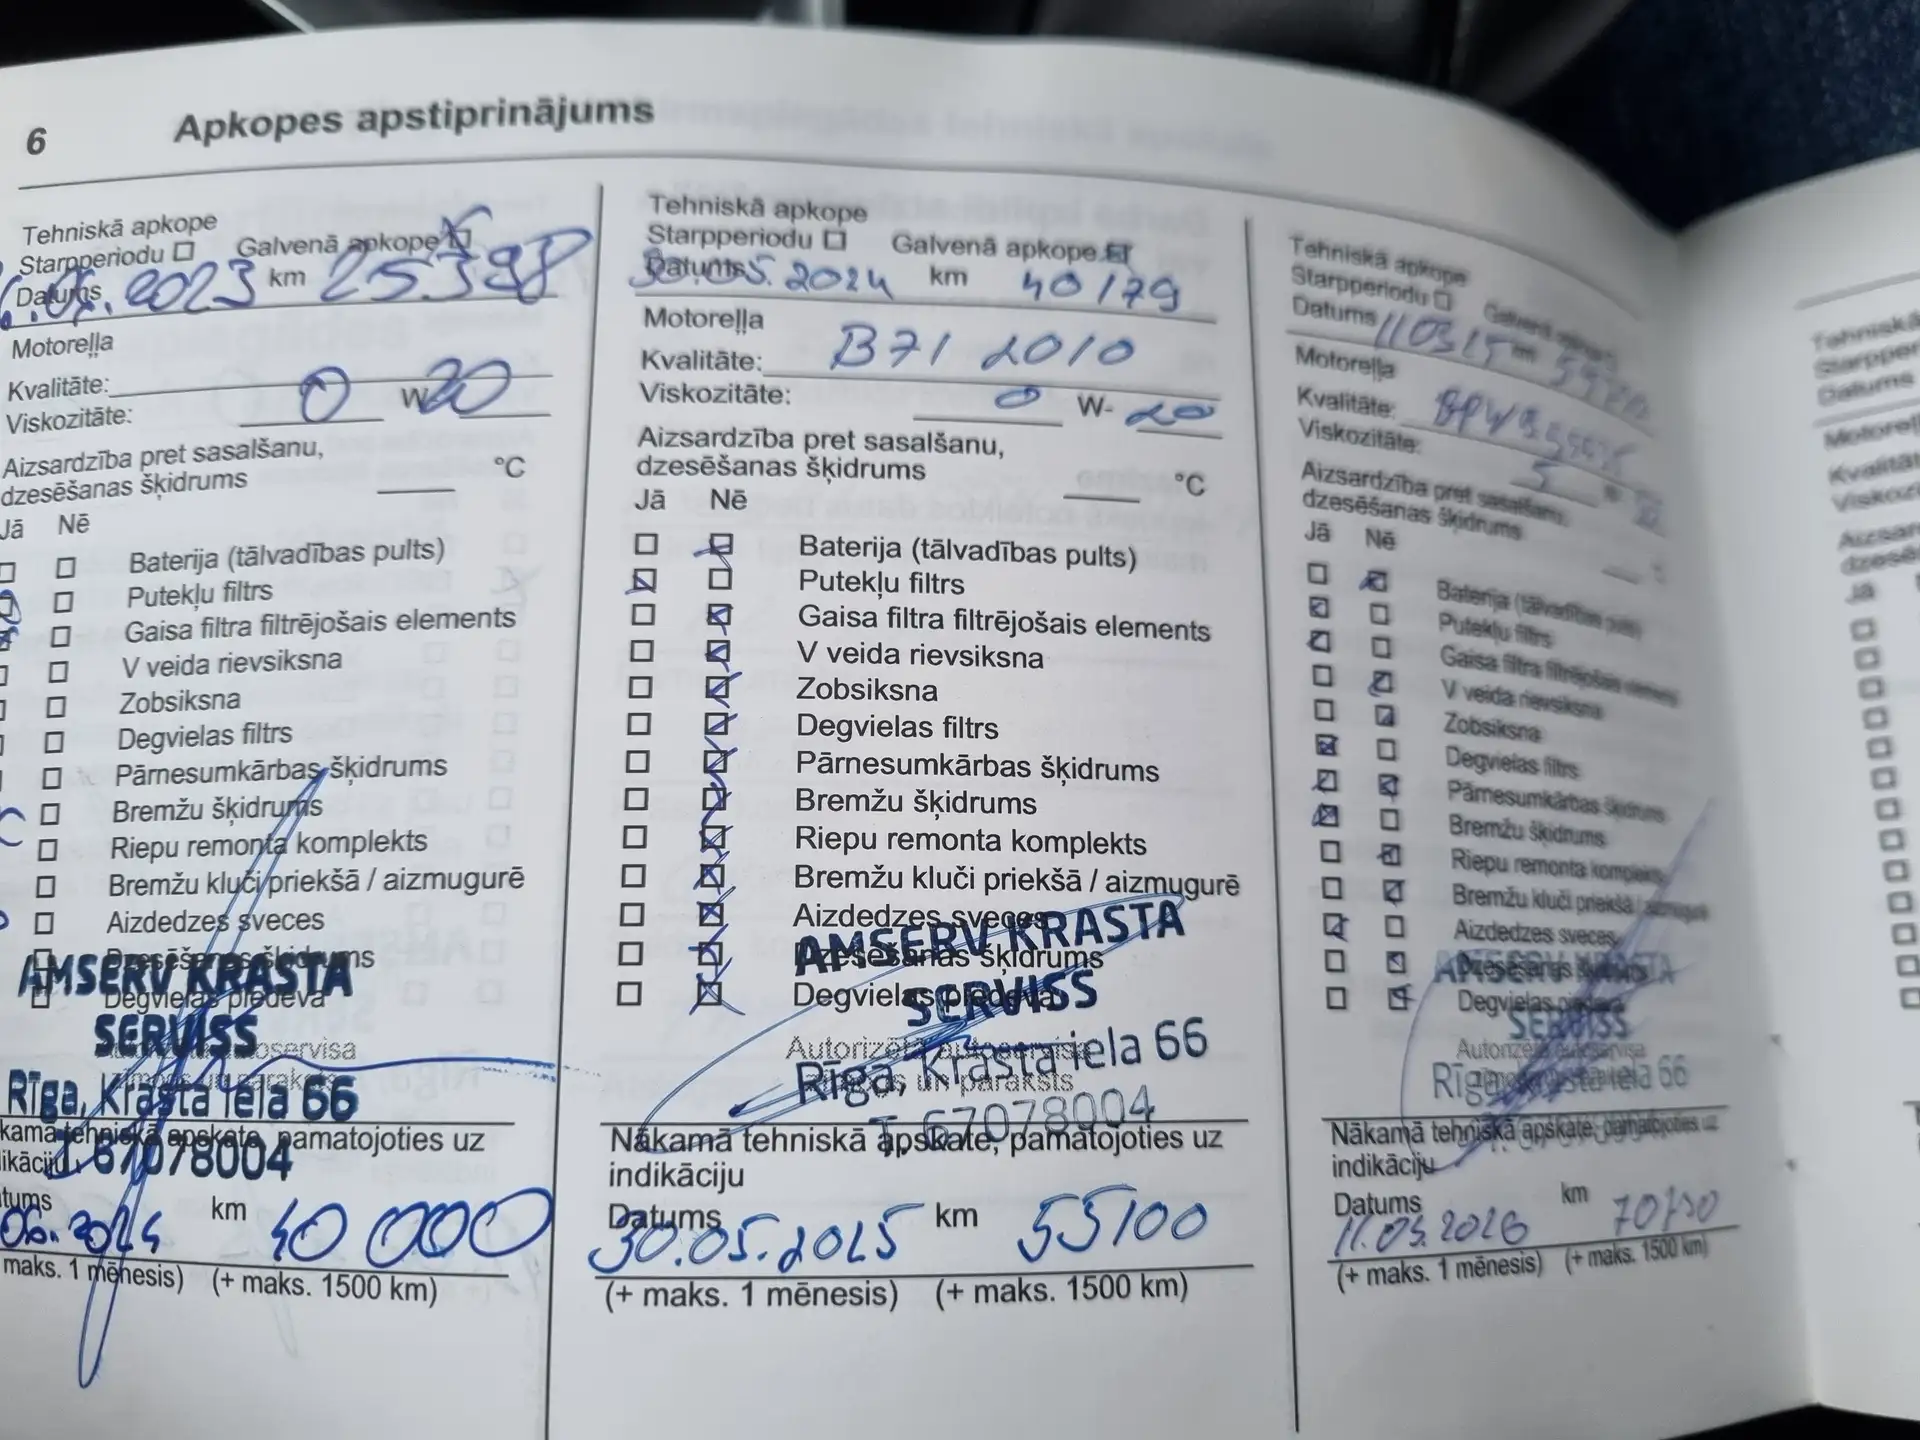 6 Apkopes apstiprinājums
Tehniskā apkope
Starpperiodu Galvenā apkope
Datums 2023 km 25398
Motoreļļa
Kvalitāte:
Viskozitāte: 0 W 20
Aizsardzība pret sasalšanu,
dzesēšanas šķidrums °C
Jā Nē
Baterija (tālvadības pults)
Putekļu filtrs
Gaisa filtra filtrējošais elements
V veida rievsiksna
Zobsiksna
Degvielas filtrs
Pārnesumkārbas šķidrums
Bremžu šķidrums
Riepu remonta komplekts
Bremžu kluči priekšā / aizmugurē
Aizdedzes sveces
Dzesēšanas šķidrums
Degvielas piedeva
AMSERV KRASTA
SERVISS
Rīga, Krasta iela 66
T. 67078004
tehniskā apskate, pamatojoties uz
km 40 000
maks. 1 mēnesis) (+ maks. 1500 km)
Tehniskā apkope
Starpperiodu Galvenā apkope
Datums 30.05.2024 km 40179
Motoreļļa
Kvalitāte: B71 2010
Viskozitāte: 0 W- 20
Aizsardzība pret sasalšanu,
dzesēšanas šķidrums °C
Jā Nē
Baterija (tālvadības pults)
Putekļu filtrs
Gaisa filtra filtrējošais elements
V veida rievsiksna
Zobsiksna
Degvielas filtrs
Pārnesumkārbas šķidrums
Bremžu šķidrums
Riepu remonta komplekts
Bremžu kluči priekšā / aizmugurē
Aizdedzes sveces
Dzesēšanas šķidrums
Degvielas piedeva
AMSERV KRASTA
SERVISS
Autorizētā autoservisa
zīmogs un paraksts
Rīga, Krasta iela 66
T. 67078004
Nākamā tehniskā apskate, pamatojoties uz
indikāciju
Datums 30.05.2025 km 55100
(+ maks. 1 mēnesis) (+ maks. 1500 km)
Tehniskā apkope
Starpperiodu Galvenā apkope
Datums
Motoreļļa
Kvalitāte:
Viskozitāte: 5
Aizsardzība pret sasalšanu,
dzesēšanas šķidrums
Jā Nē
Baterija (tālvadības pults)
Putekļu filtrs
Gaisa filtra filtrējošais elements
V veida rievsiksna
Zobsiksna
Degvielas filtrs
Pārnesumkārbas šķidrums
Bremžu šķidrums
Riepu remonta komplekts
Bremžu kluči priekšā / aizmugurē
Aizdedzes sveces
Dzesēšanas šķidrums
Degvielas piedeva
AMSERV KRASTA
SERVISS
Autorizētā autoservisa
Rīga, Krasta iela 66
Nākamā tehniskā apskate, pamatojoties uz
indikāciju
Datums 11.03.2026 km
(+ maks. 1 mēnesis) (+ maks. 1500 km)